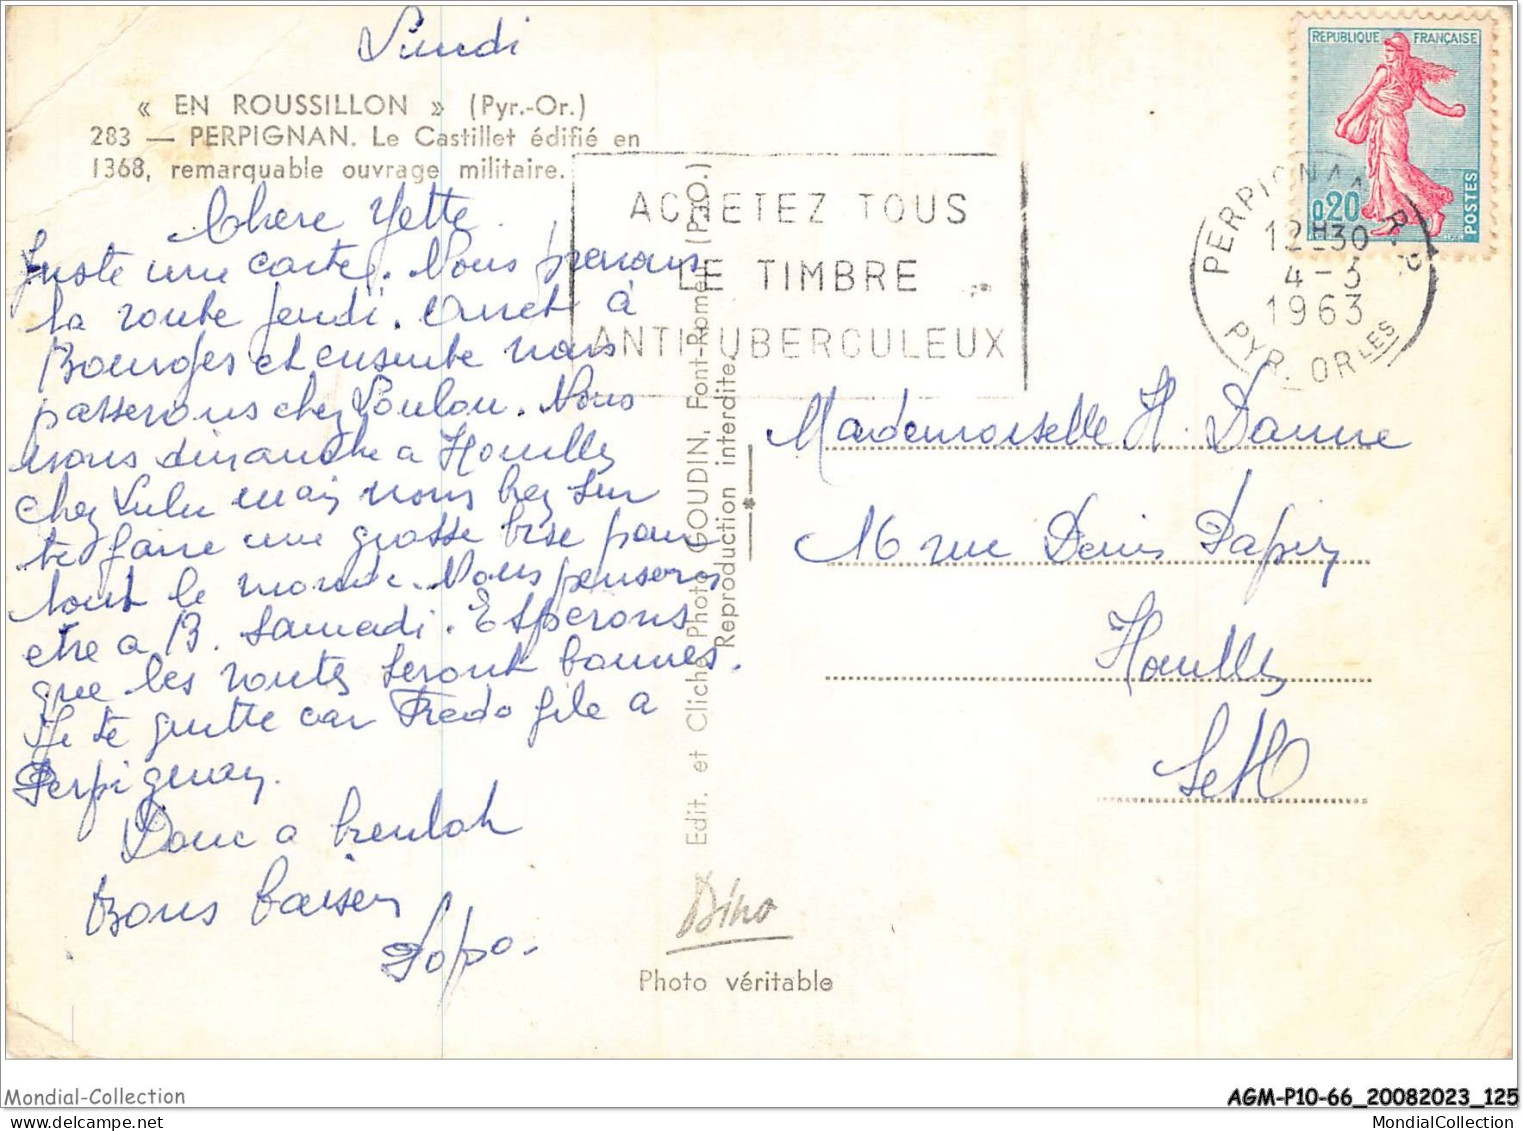 Lundi
« EN ROUSSILLON » (Pyr.-Or.)
283 — PERPIGNAN. Le Castillet édifié en
1368, remarquable ouvrage militaire.
Chere Yette
Juste une carte. Nous prenons
la route jeudi. Arret à
Bourges et ensuite nous
passerons chez Loulou. Nous
irons dimanche a Houilles
chez Lulu mais nous
te faire une grosse bise pour
tout le monde. Nous pensons
etre a B. Samedi. Esperons
que les routes seront bonnes.
Je te quitte car Fredo file a
Perpignan.
Donc a bientot
Bons baisers
ACHETEZ TOUS
LE TIMBRE
ANTITUBERCULEUX
Edit. et Cliché Photo GOUDIN, Font-Romeu (P.-O.)
Reproduction interdite
Dino
Photo véritable
REPUBLIQUE FRANÇAISE
0,20
POSTES
PERPIGNAN R.P.
12H30
4-3
1963
PYR. ORLES
Mademoiselle H. Danne
16 rue Denis Papin
Houilles
S et O
Mondial-Collection
AGM-P10-66_20082023_125
MondialCollection